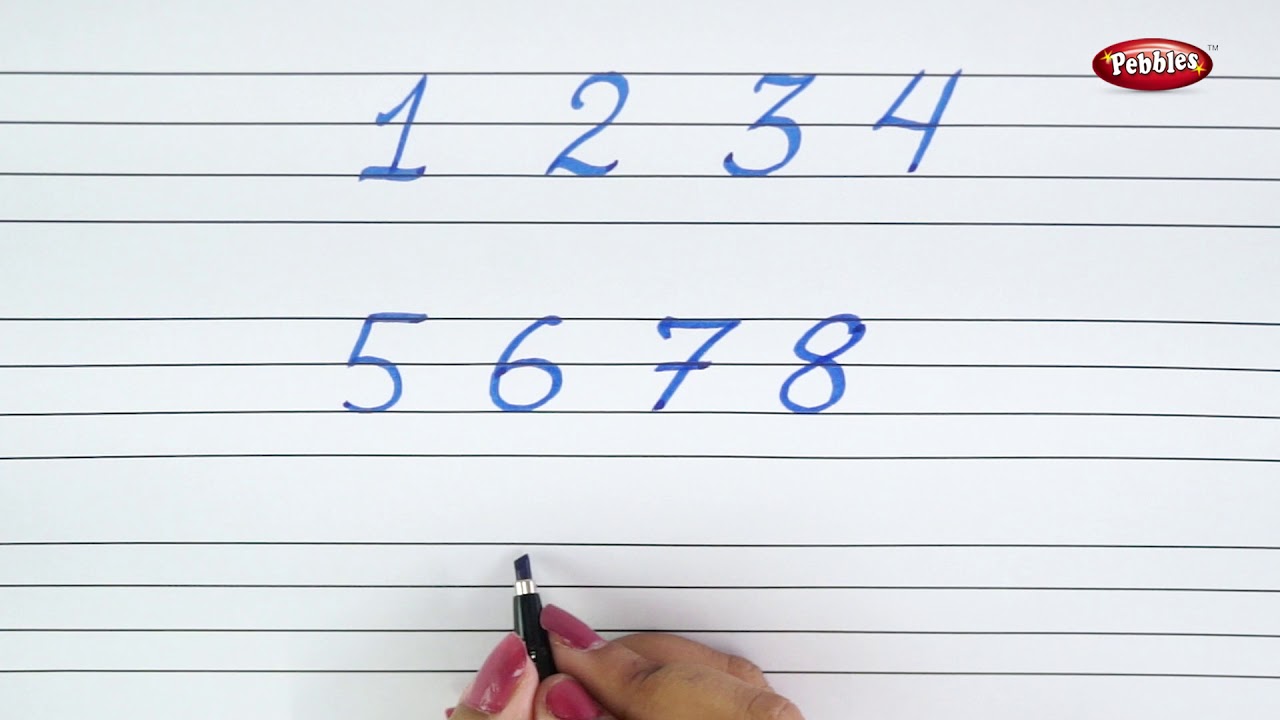 Pebbles™
1 2 3 4
5 6 7 8